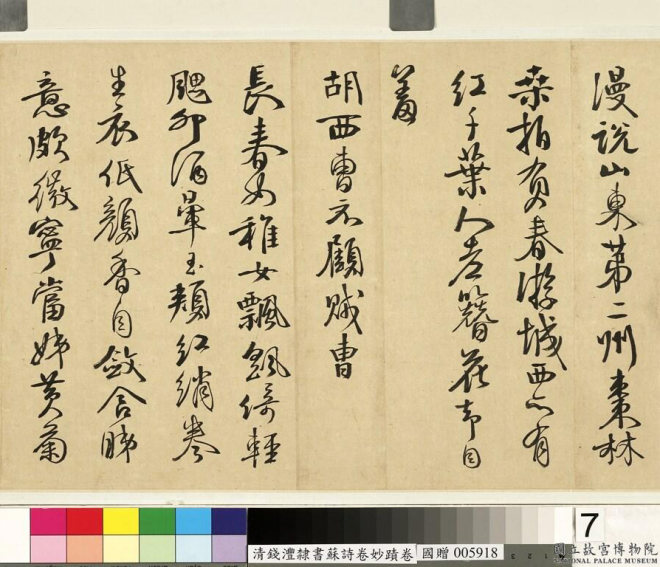 漫說山東第二州棗林
桑柏負春游城西亦有
紅千葉人老簪花却自
羞
胡西曹示顧賊曹
長春如稚女飄颻倚輕
颸卯酒暈玉頰紅綃卷
生衣低顏香自斂含睇
意頗微寧當娣黃菊
7
清錢灃隸書蘇詩卷妙蹟卷 國贈 005918
國立故宮博物院
NATIONAL PALACE MUSEUM